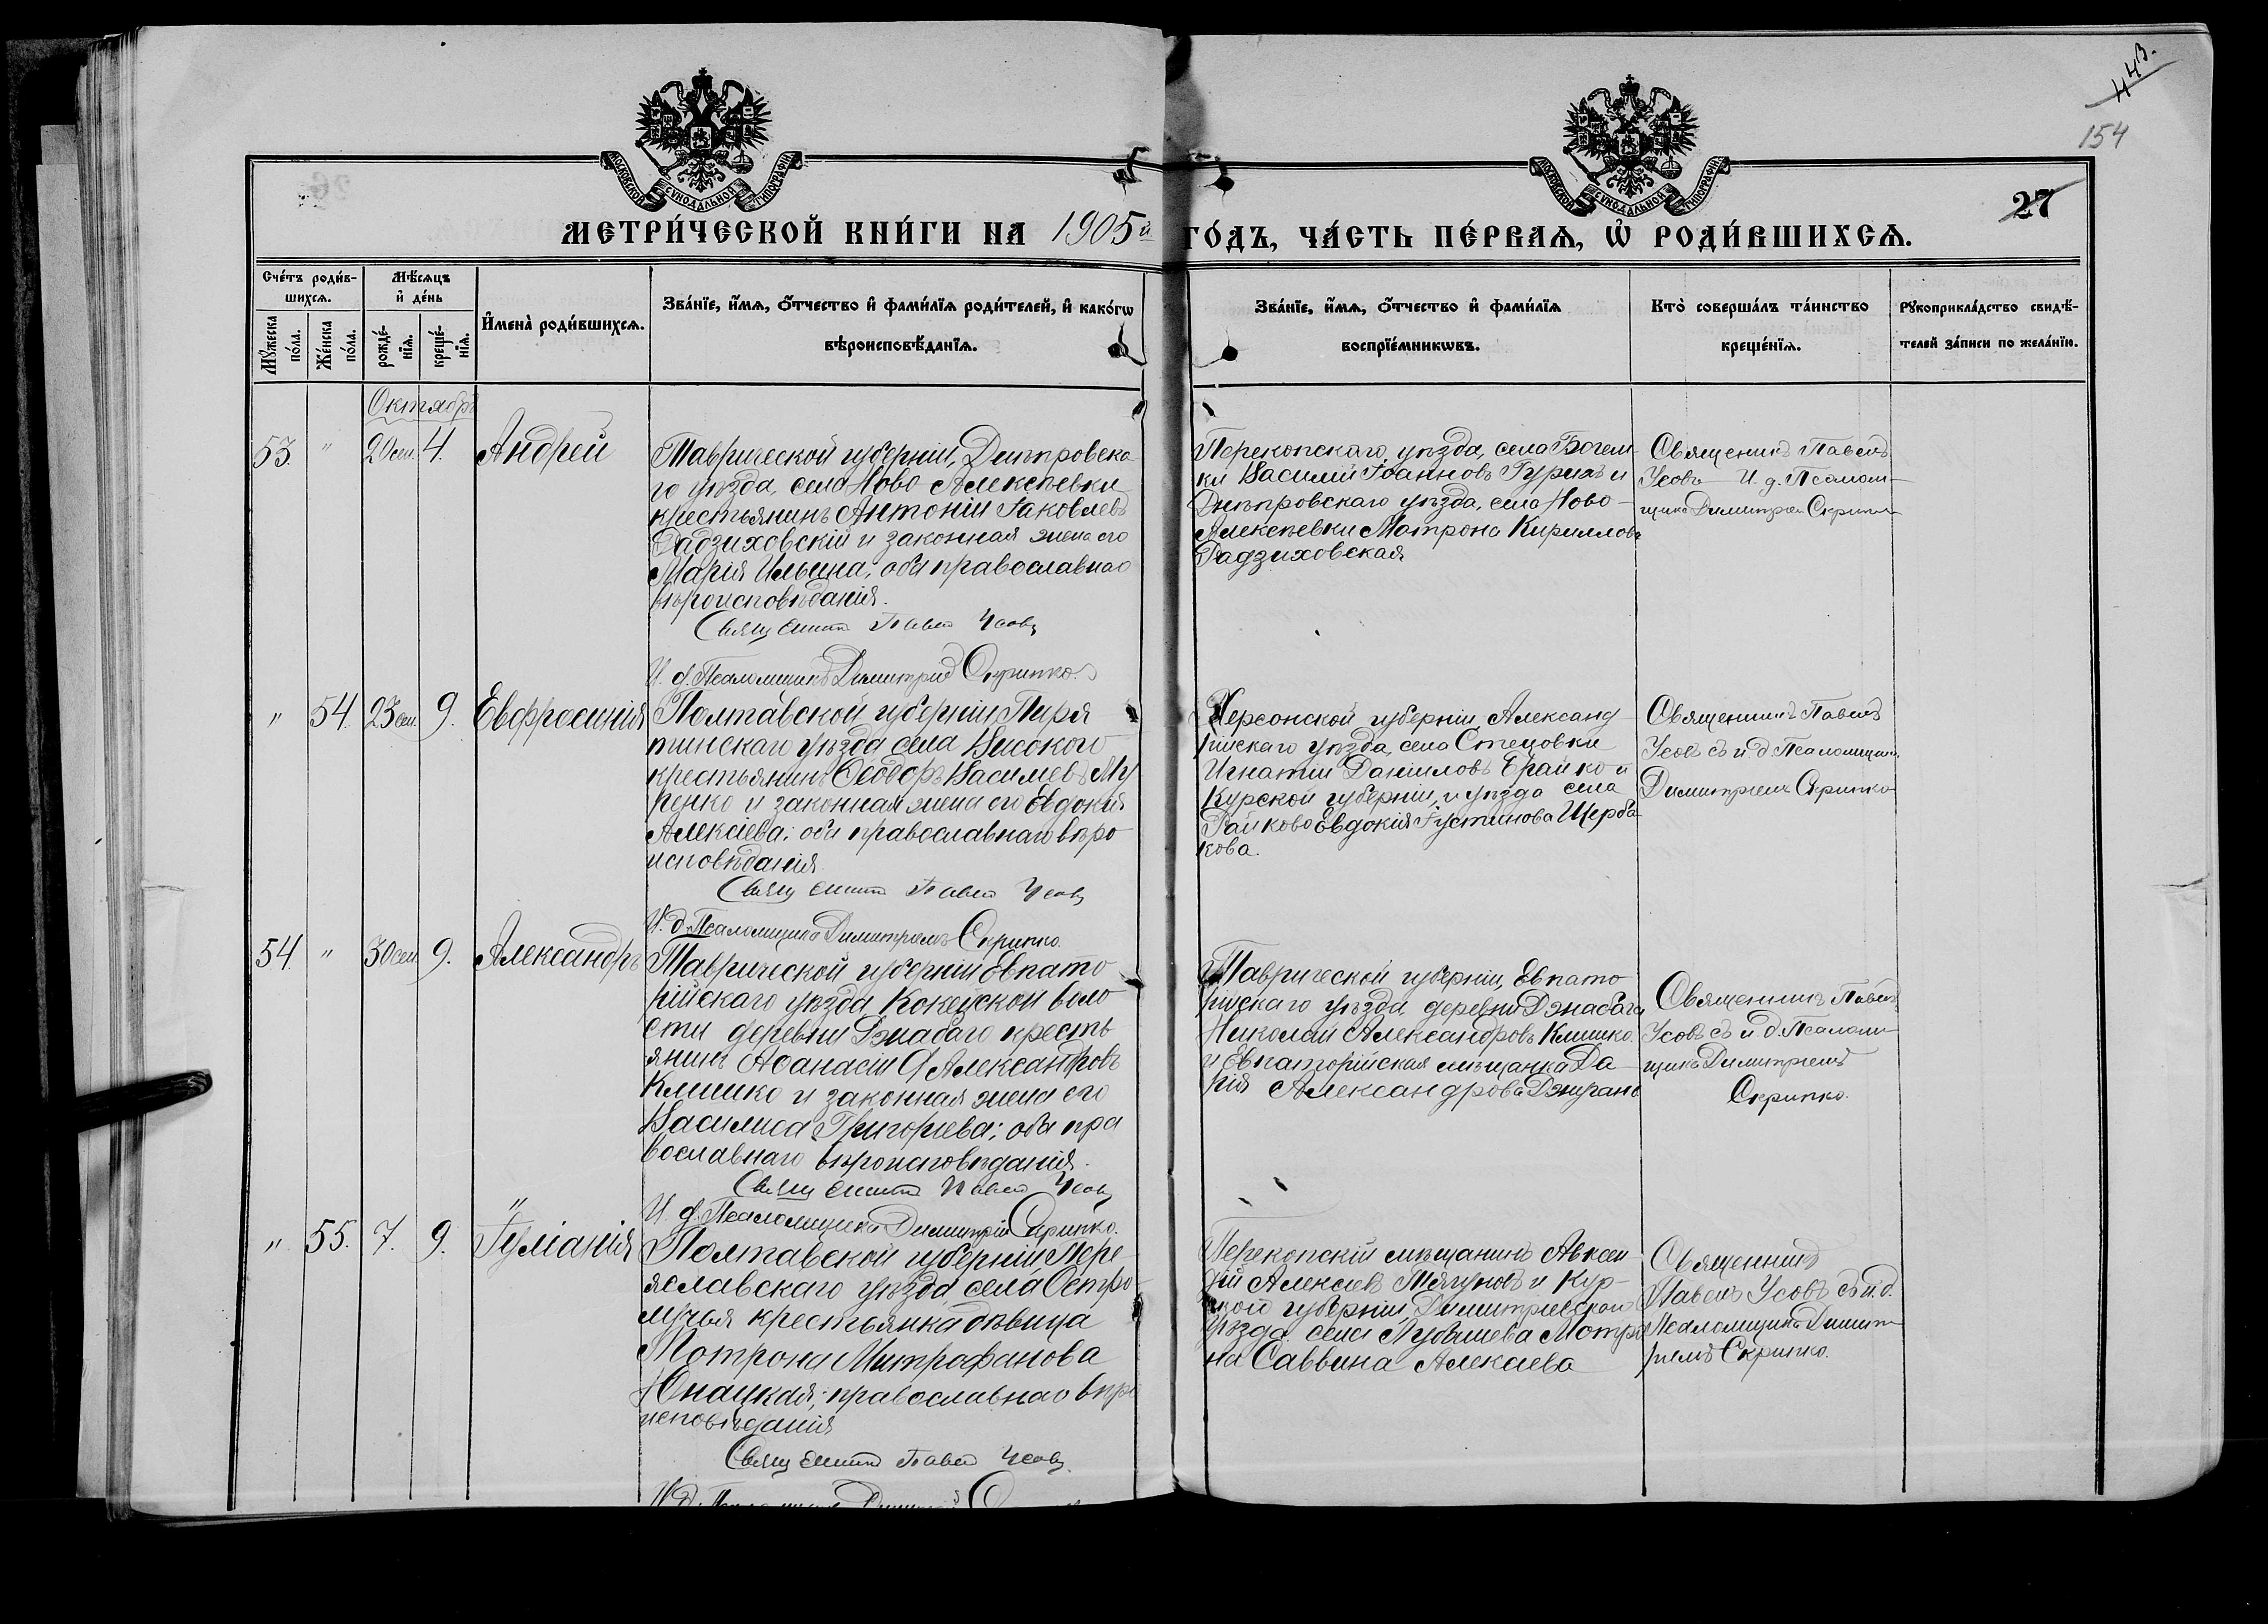 443.
154
27
МОСКОВСКОЙ СУНОДАЛЬНОЙ ТИПОГРАФІИ
МОСКОВСКОЙ СУНОДАЛЬНОЙ ТИПОГРАФІИ
МЕТРИ́ЧЕСКОЙ КНИ́ГИ НА 1905й ГО́ДЪ, ЧА́СТЬ ПЕ́РВАѦ, Ѡ҆ РОДИ́ВШИХСѦ.
Сче́тъ роди́в-
шихсѧ.
Мꙋ́жеска по́ла.
Же́нска по́ла.
Мѣ́сѧцъ
и҆ де́нь
рожде́-
нїѧ.
креще́-
нїѧ.
И҆мена̀ роди́вшихсѧ.
Зва́нїе, и҆́мѧ, ѻ҆́тчество и҆ фами́лїѧ роди́телей, и҆ како́гѡ
вѣроисповѣ́данїѧ.
Зва́нїе, и҆́мѧ, ѻ҆́тчество и҆ фами́лїѧ
воспрїе́мникѡвъ.
Кто̀ соверша́лъ та́инство
креще́нїѧ.
Рꙋкоприкла́дство свидѣ́-
телей за́писи по жела́нїю.
Октябрь
53. " 20 сен. 4. Андрей
Таврической губерніи, Днѣпровска
го уѣзда, села Ново Алексѣевки
крестьянинъ Антоній Іаковлевъ
Радзиховскій и законная жена его
Марія Ильина; оба православнаго
вѣроисповѣданія.
Священникъ Павелъ Усовъ
И. д. Псаломщика Димитрій Скрипко.
Перекопскаго уѣзда, села Богем-
ки Василій Іоанновъ Гурихъ и
Днѣпровскаго уѣзда, села Ново-
Алексѣевки Матрона Кириллова
Радзиховская
Священникъ Павелъ
Усовъ И. д. Псалом-
щика Димитріем Скрипко
" 54. 23 сен. 9. Евфросинія
Полтавской губерніи Пиря
тинскаго уѣзда села Высокого
крестьянинъ Ѳеодоръ Васильевъ Му
ренко и законная жена его Евдокія
Алексіева; оба православнаго вѣро
исповѣданія
Священникъ Павелъ Усовъ
И. д. Псаломщика Димитрій Скрипко.
Херсонской губерніи Александ
рійскаго уѣзда села Стецовки
Игнатій Даніиловъ Ерайко и
Курской губерніи, и уѣзда села
Райково Евдокія Іустинова Щерба
кова.
Священникъ Павелъ
Усовъ съ и. д. Псаломщик.
Димитріем Скрипко
54. " 30 сен. 9. Александръ
Таврической губерніи Евпато
рійскаго уѣзда Кокейской воло
сти деревни Джабаго кресть
янинъ Аѳанасій Александровъ
Климко и законная жена его
Василиса Григорьева; оба пра
вославнаго вѣроисповѣданія.
Священникъ Павелъ Усовъ
И. д. Псаломщика Димитрій Скрипко.
Таврической губерніи, Евпато
рійскаго уѣзда деревни Джабага
Николай Александровъ Климко.
и Евпаторійская мѣщанка Да
рія Александрова
Священникъ Павелъ
Усовъ съ и. д. Псалом
щика Димитріемъ
Скрипко.
" 55. 7. 9. Іуліанія
Полтавской губерніи, Пере
яславскаго уѣзда, села Остро-
лучья крестьянка дѣвица
Мотрона Митрофанова
Юнацкая; православнаго вѣро
исповѣданія
Священникъ Павелъ Усовъ.
Перекопскій мѣщанинъ Авксен
тій Алексіевъ Тягуновъ и Кур-
ской губерніи, Димитріевской
уѣзда села Мотро
на Саввина Алексіева
Священникъ
Павелъ Усовъ съ и. д.
Псаломщика Димит
ріемъ Скрипко.